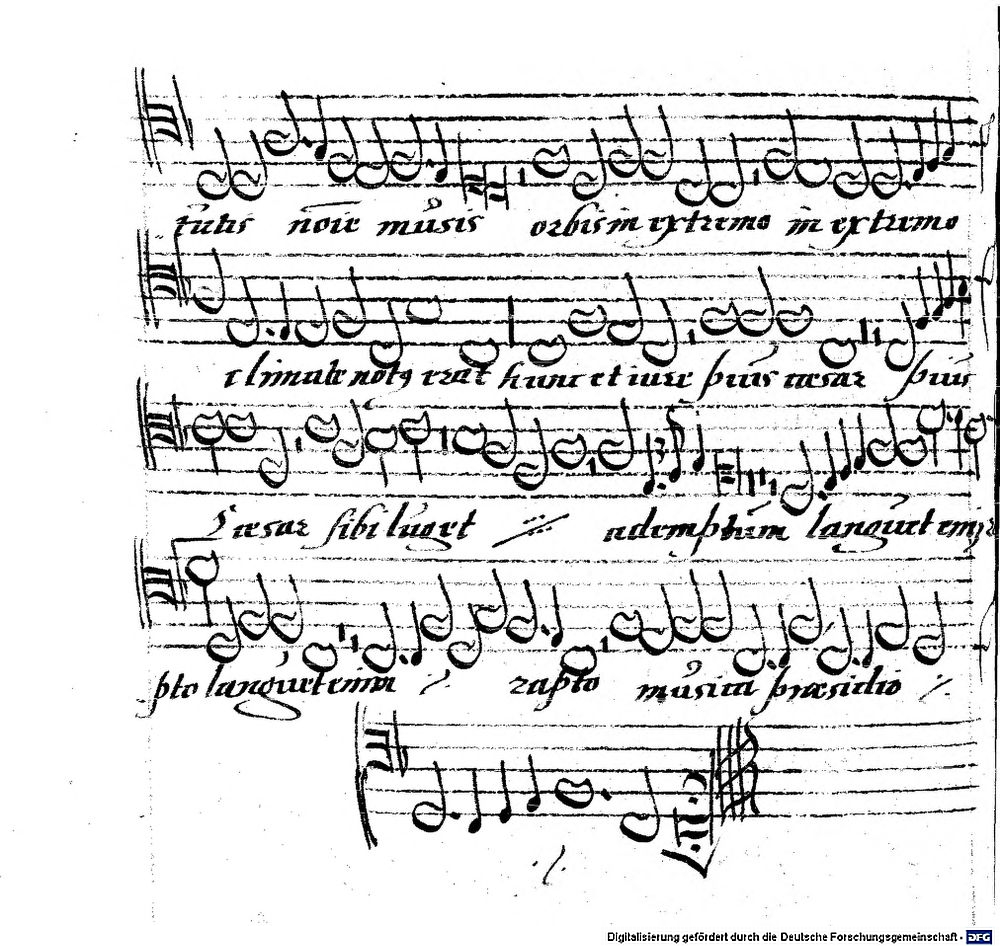 tutis noie musis orbis in extremo in extremo
climate not9 erat hunc et iure pius cæsar pius
Cæsar sibi luget ademptum languet enim ra
pto languet enim rapto musica præsidio
Digitalisierung gefördert durch die Deutsche Forschungsgemeinschaft - DFG